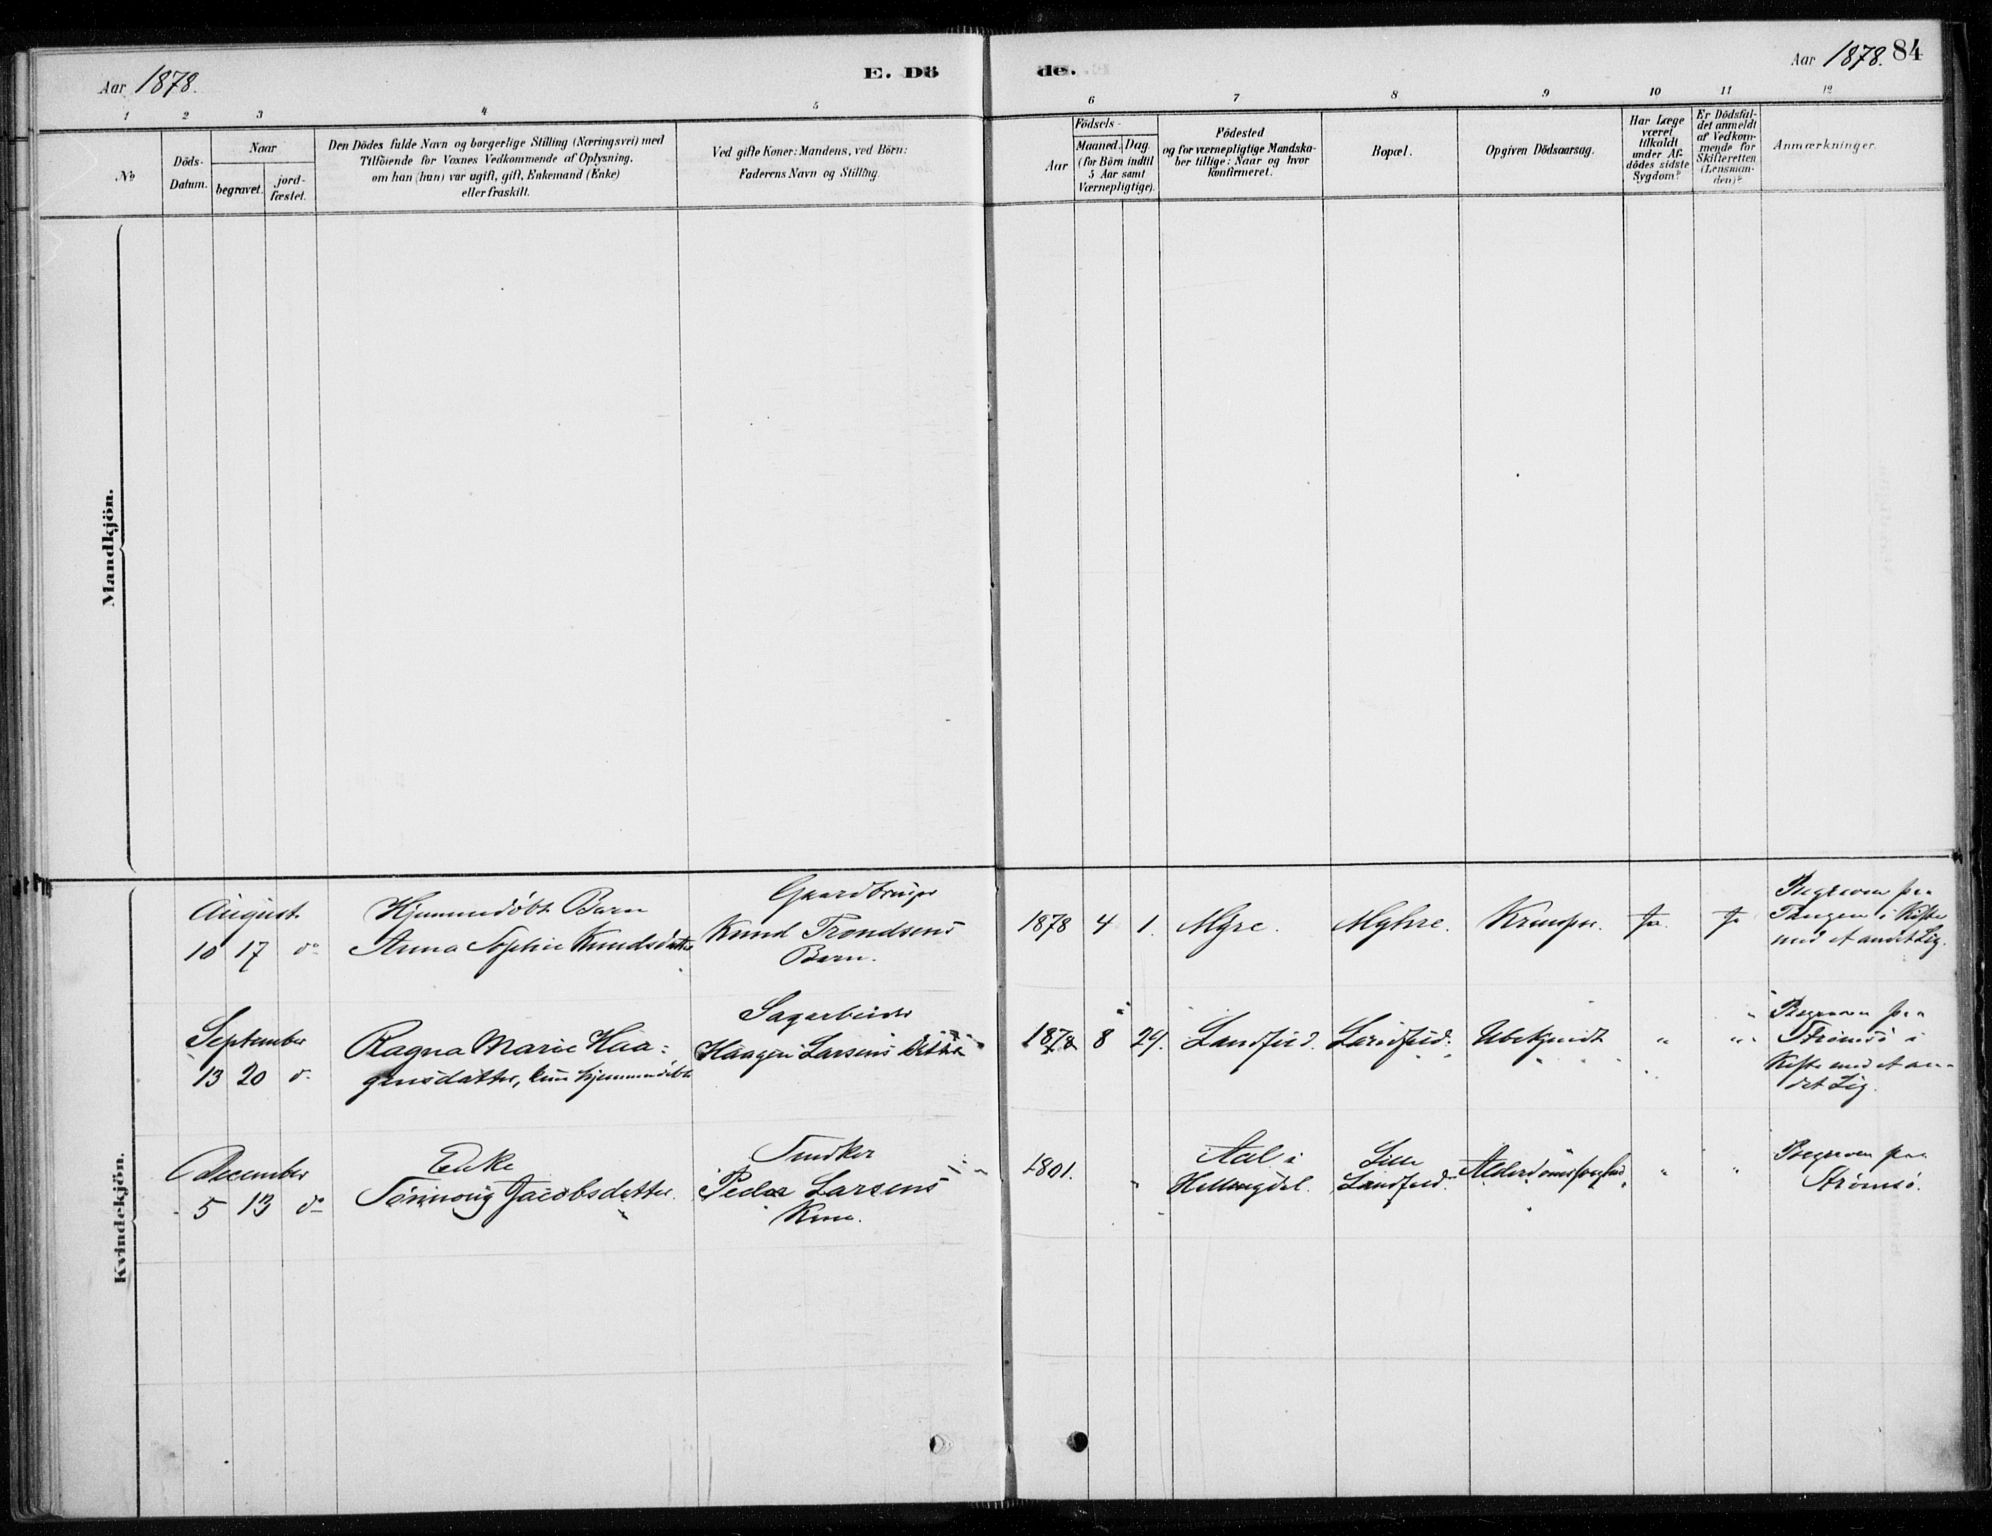 Aar 1878.
E. Dö
de.
Aar 1878. 84
1 2 3 4 5
6 7 8 9 10 11 12
No
Döds-
Datum.
Naar
begravet.
jord-
fæstet.
Den Dödes fulde Navn og borgerlige Stilling (Næringsvei) med
Tilföiende for Voxnes Vedkommende af Oplysning,
om han (hun) var ugift, gift, Enkemand (Enke)
eller fraskilt.
Ved gifte Koner: Mandens, ved Börn:
Faderens Navn og Stilling.
Födsels-
Aar
Maaned. Dag.
(for Börn indtil
5 Aar samt
Værnepligtige).
Födested
og for værnepligtige Mandska-
ber tillige: Naar og hvor
konfirmeret.
Bopæl.
Opgiven Dödsaarsag.
Har Læge
været
tilkaldt
under Af-
dödes sidste
Sygdom?
Er Dödsfal-
det anmeldt
af Vedkom-
mende for
Skifteretten
(Lensman-
den)?
Anmærkninger.
Mandkjön.
Kvindekjön.
August
10 17 do
Hjemmedøbt Barn
Anna Sophie Knudsdatter
Gaardbruger
Knud Trondsens
Barn.
1878 4 1. Myre. Myhre. Krampe. Ja. Ja
Begraven paa
Tangen i Kiste
med et andet Lig.
September
13 20 do
Ragna Marie Haa-
gensdatter, kun hjemmedøbt
Sagarbeider
Haagen Larsens Datter
1878 8 29. Landfald. Landfald. Ubekjendt " "
Begraven paa
Strømsø i
Kiste med et an-
det Lig.
December
5 13 do
Enke
Jacobsdatter.
Snedker
Peder Larsens
Kone.
1801. "
Aal i
Hallingdal.
Lille
Landfald.
Alderdomssvaghed " "
Begraven paa
Strømsø.